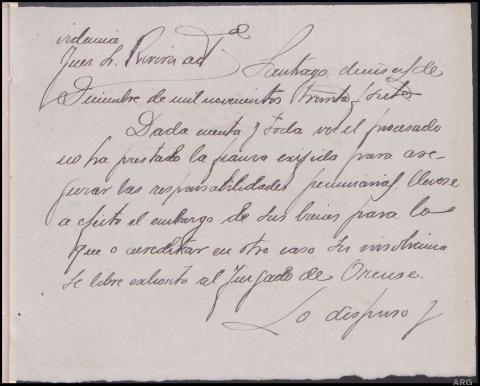 videncia
Juez Sr. Rivera acctal
Santiago, dieciseis de
Diciembre de mil novecientos treinta y siete
Dada cuenta y toda vez el procesado
no ha prestado la fianza exijida para ase-
gurar las responsabilidades pecuniarias, llevese
a efecto el embargo de sus bienes para lo
que o acreditar en otro caso su insolvencia
se libre exhorto al Juzgado de Orense.
Lo dispuso y
ARG